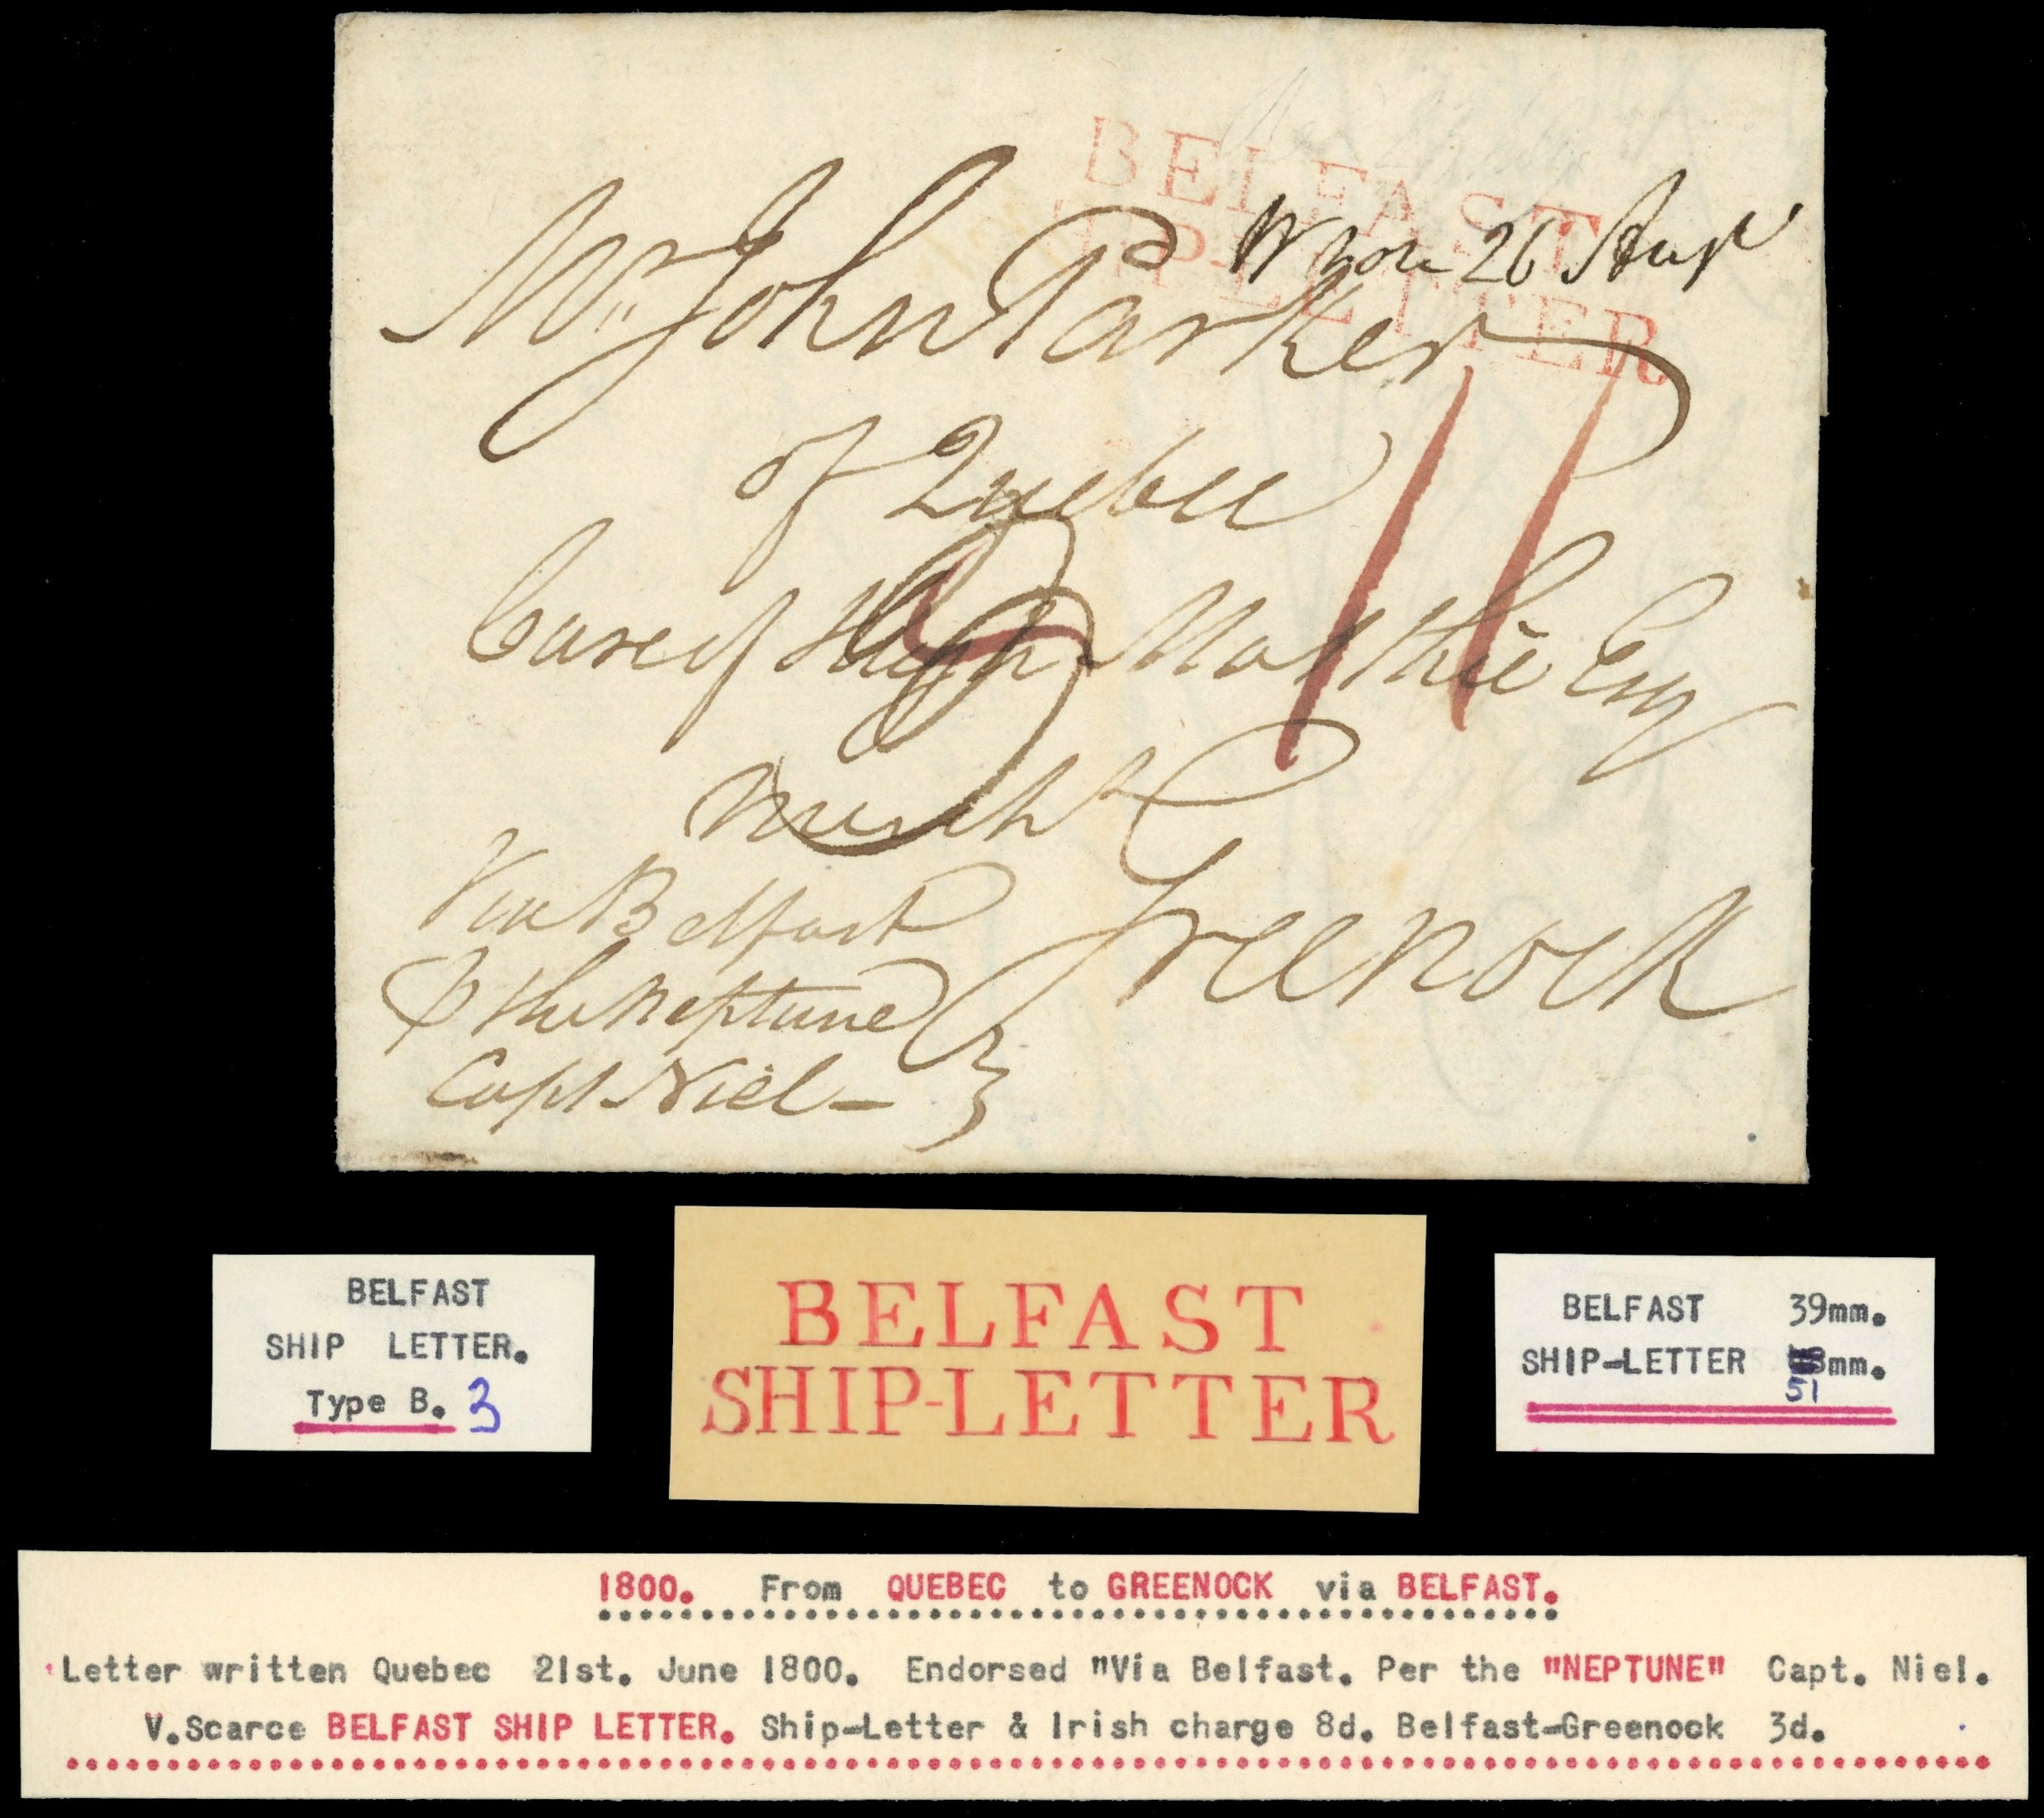 BELFAST
IP-LETTER
26
Mr. John Parker
of Quebec
Care of Hugh Matthie Esq
Mercht
Greenock
Via Belfast
the Neptune
Capt Niel —
11
BELFAST
SHIP LETTER.
Type B. 3
BELFAST
SHIP-LETTER
BELFAST 39mm.
SHIP-LETTER mm.
51
1800. From QUEBEC to GREENOCK via BELFAST.
Letter written Quebec 21st. June 1800. Endorsed "Via Belfast. Per the "NEPTUNE" Capt. Niel.
V.Scarce BELFAST SHIP LETTER. Ship-Letter & Irish charge 8d. Belfast-Greenock 3d.